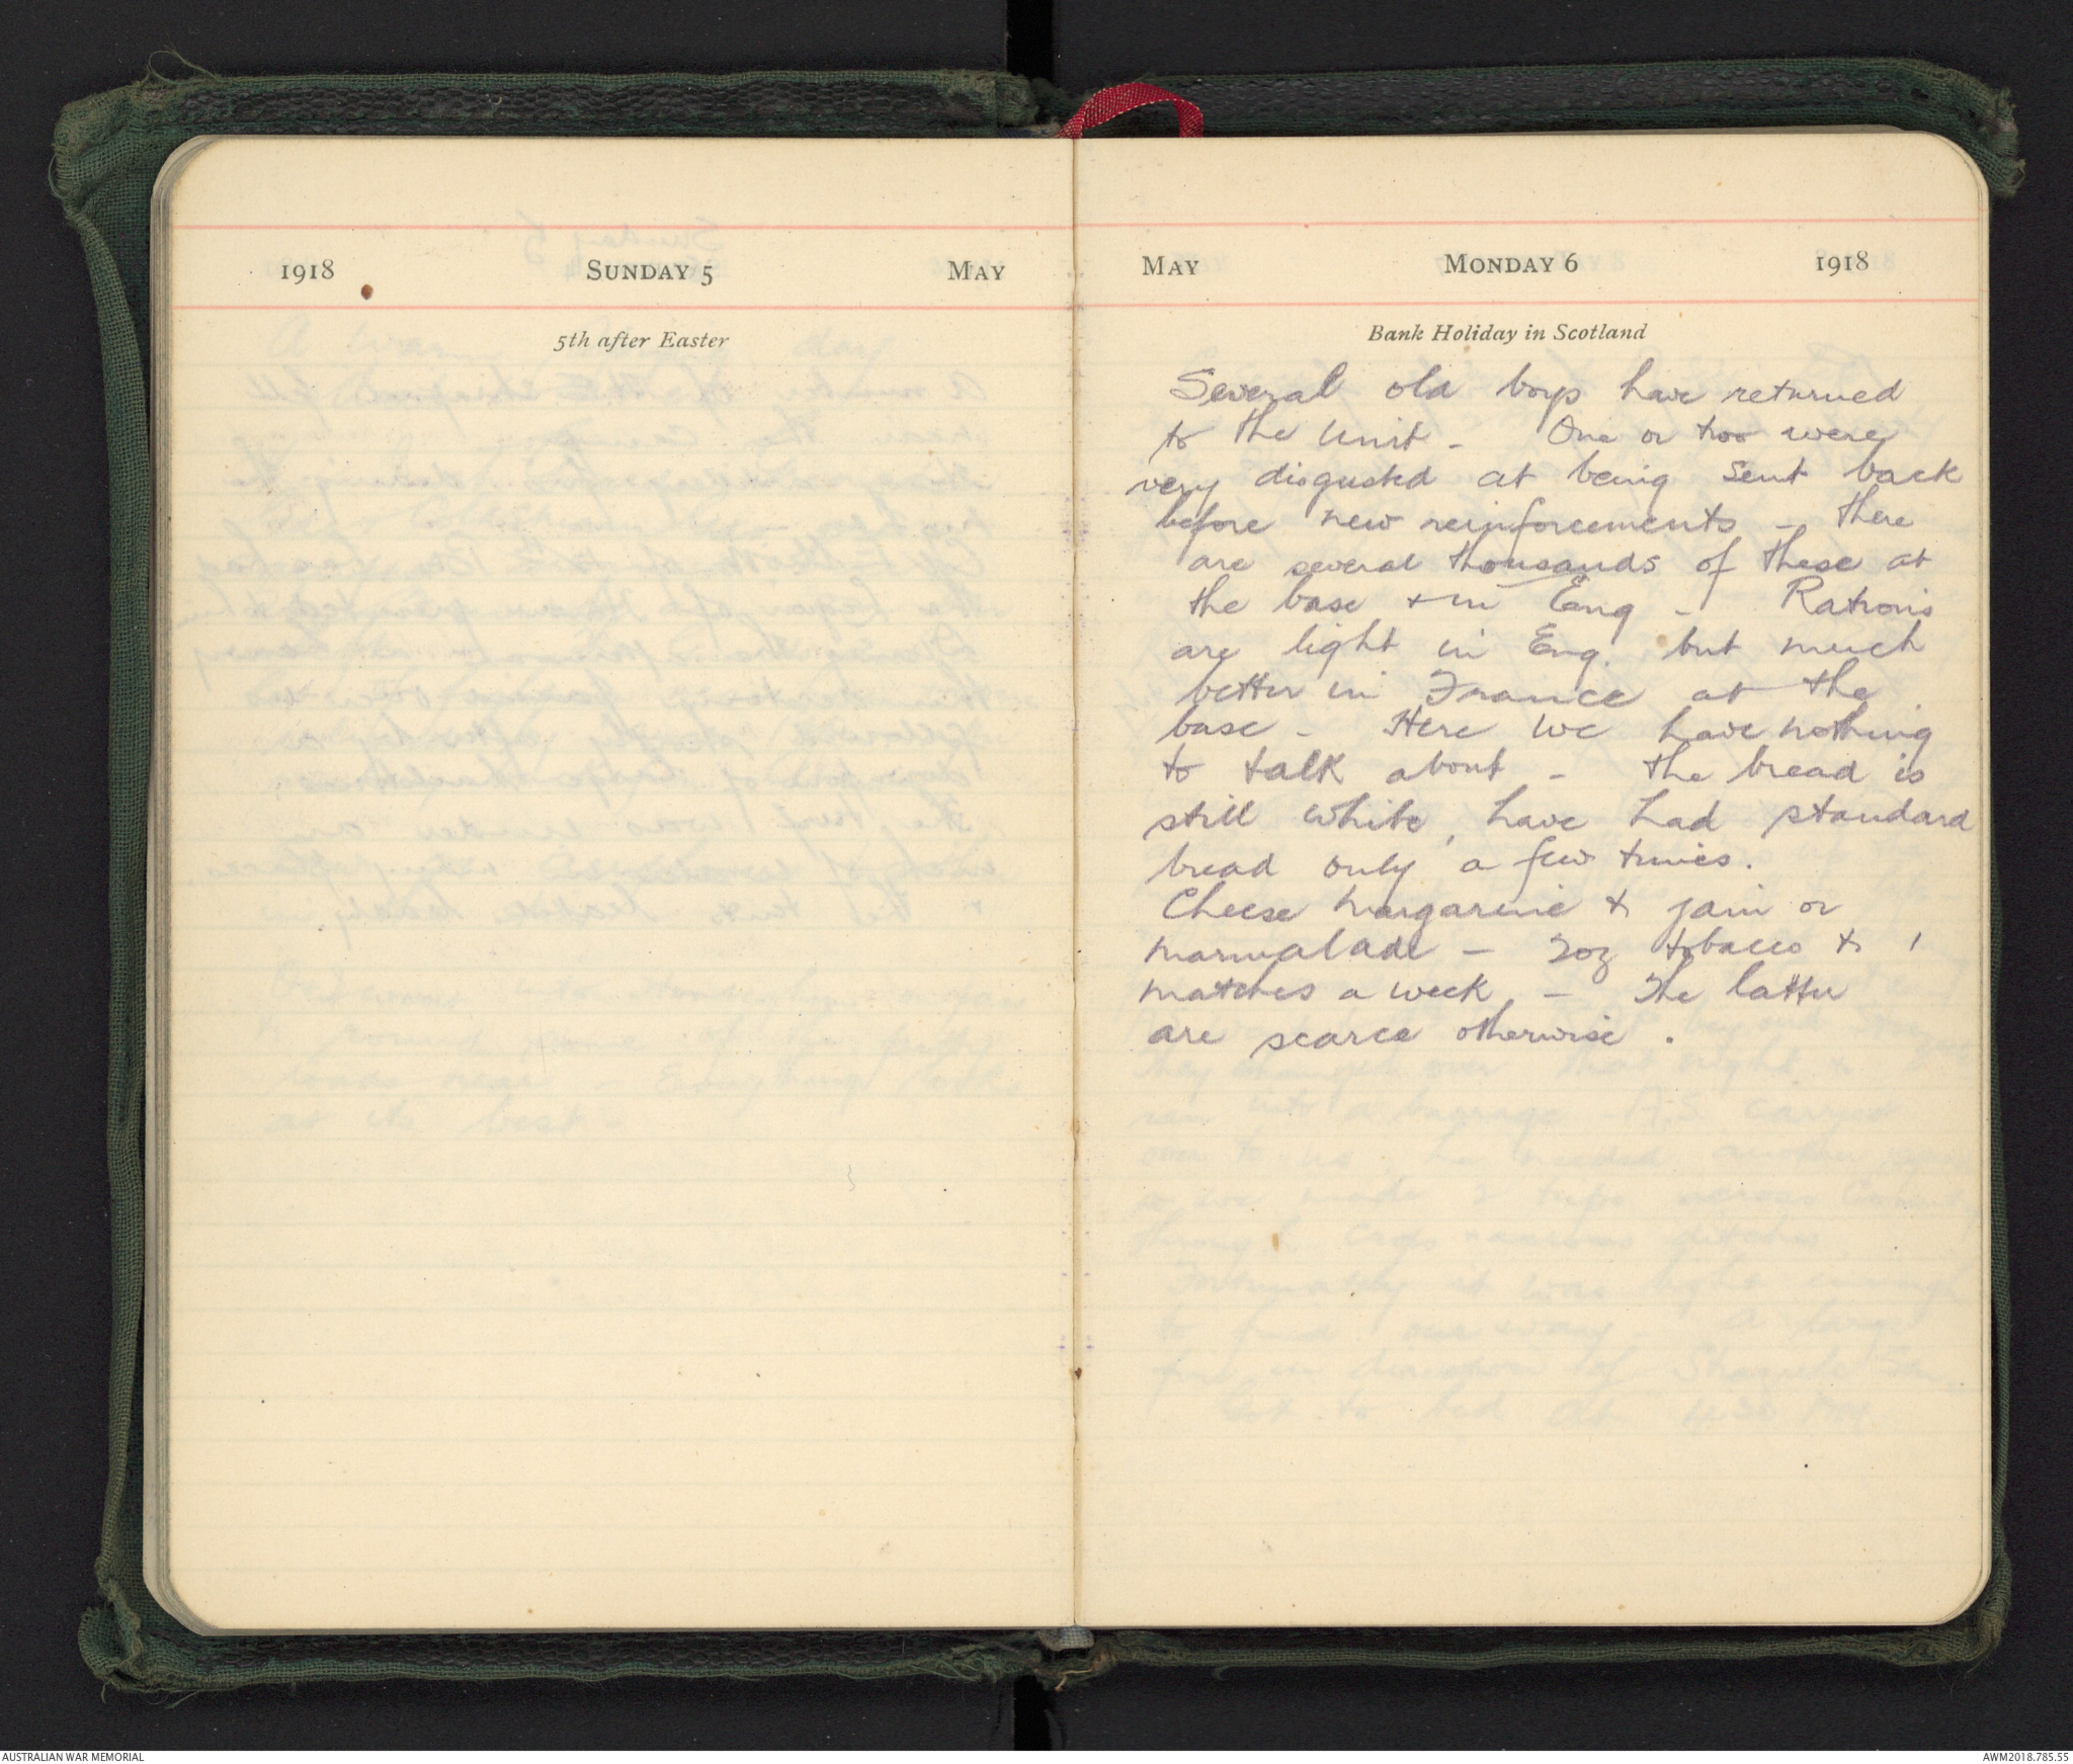 1918 SUNDAY 5 MAY
5th after Easter
MAY MONDAY 6 1918
Bank Holiday in Scotland
Several old boys have returned
to the Unit - One or two were
very disgusted at being sent back
before new reinforcements - there
are several thousands of these at
the base + in Eng - Rations
are light in Eng. but much
better in France at the
base - Here we have nothing
to talk about - the bread is
still white, have had standard
bread only a few times.
Cheese margarine & jam or
marmalade - 2oz tobacco & 1
matches a week, - The latter
are scarce otherwise.
AUSTRALIAN WAR MEMORIAL
AWM2018.785.55